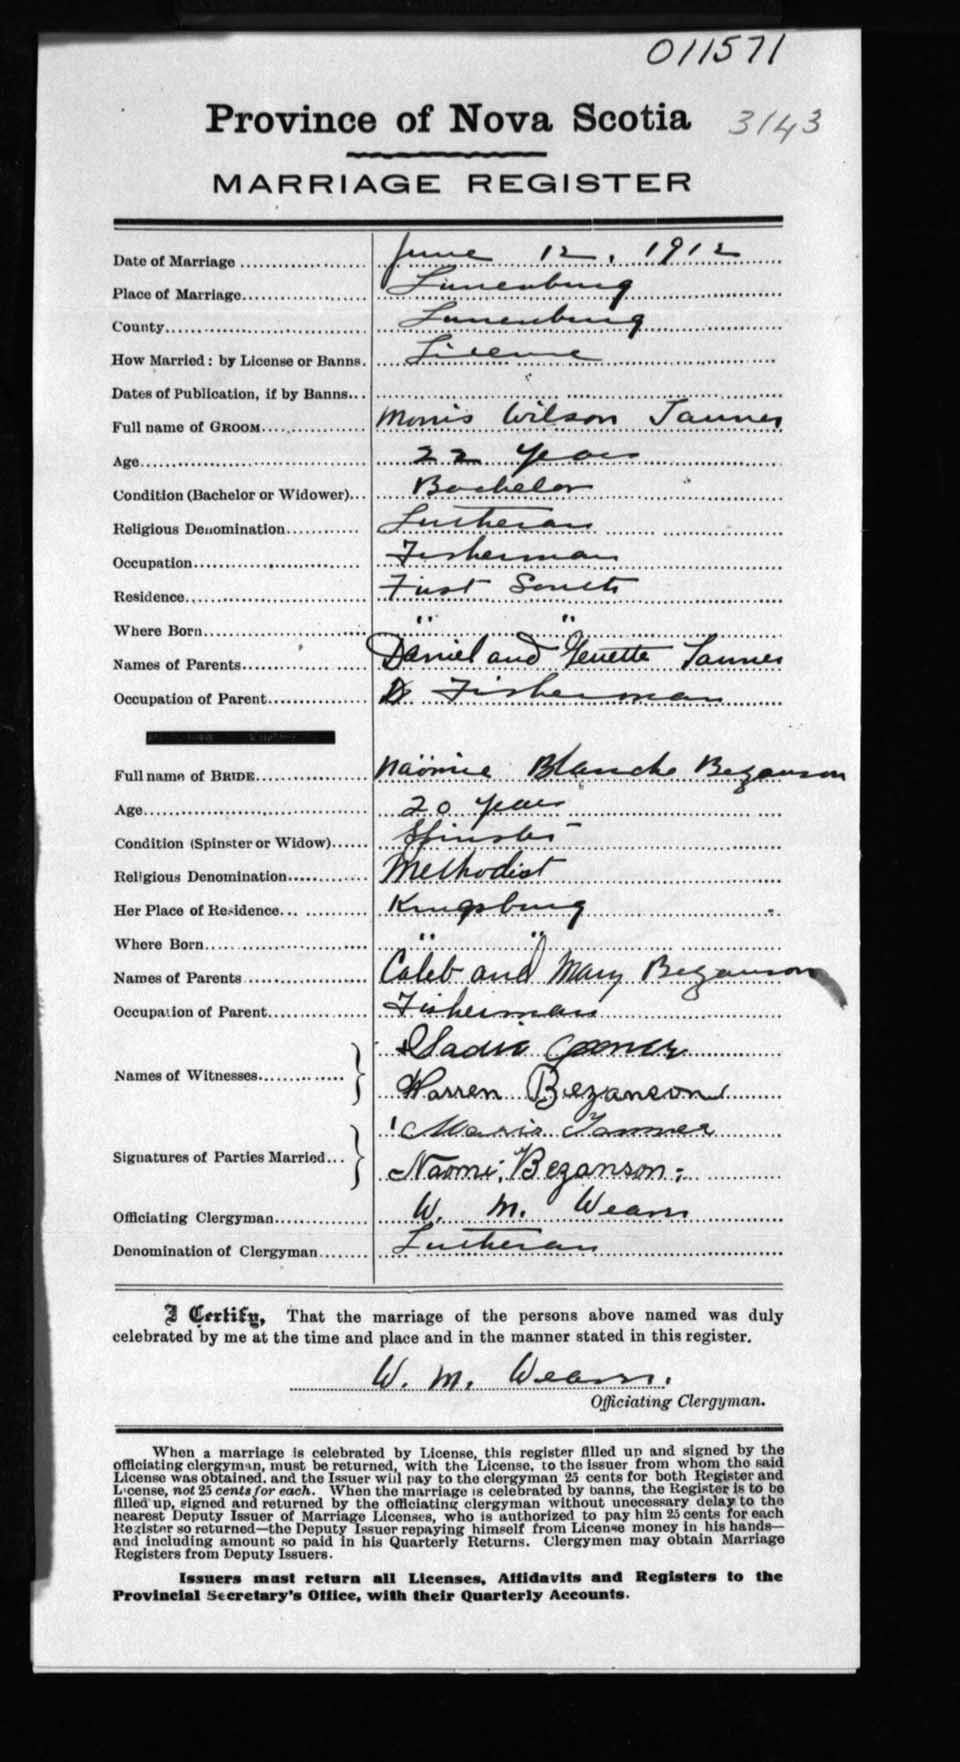 011571
Province of Nova Scotia 3143
MARRIAGE REGISTER
Date of Marriage June 12, 1912
Place of Marriage Lunenburg
County Lunenburg
How Married: by License or Banns. License
Dates of Publication, if by Banns
Full name of GROOM Morris Wilson Tanner
Age 22 years
Condition (Bachelor or Widower) Bachelor
Religious Denomination Lutheran
Occupation Fisherman
Residence First South
Where Born " "
Names of Parents Daniel and Genette Tanner
Occupation of Parent Fisherman
Full name of BRIDE Naomie Blanche Bezanson
Age 20 years
Condition (Spinster or Widow) Spinster
Religious Denomination Methodist
Her Place of Residence Kingsburg
Where Born " "
Names of Parents Caleb and Mary Bezanson
Occupation of Parent Fisherman
Names of Witnesses Sadie
Warren Bezanson
Signatures of Parties Married Tanner
Naomi Bezanson
Officiating Clergyman W. M.
Denomination of Clergyman Lutheran
I Certify, That the marriage of the persons above named was duly
celebrated by me at the time and place and in the manner stated in this register.
W. M.
Officiating Clergyman.
When a marriage is celebrated by License, this register filled up and signed by the
officiating clergyman, must be returned, with the License, to the issuer from whom the said
License was obtained, and the Issuer will pay to the clergyman 25 cents for both Register and
License, not 25 cents for each. When the marriage is celebrated by banns, the Register is to be
filled up, signed and returned by the officiating clergyman without unecessary delay to the
nearest Deputy Issuer of Marriage Licenses, who is authorized to pay him 25 cents for each
Register so returned—the Deputy Issuer repaying himself from License money in his hands—
and including amount so paid in his Quarterly Returns. Clergymen may obtain Marriage
Registers from Deputy Issuers.
Issuers must return all Licenses, Affidavits and Registers to the
Provincial Secretary's Office, with their Quarterly Accounts.